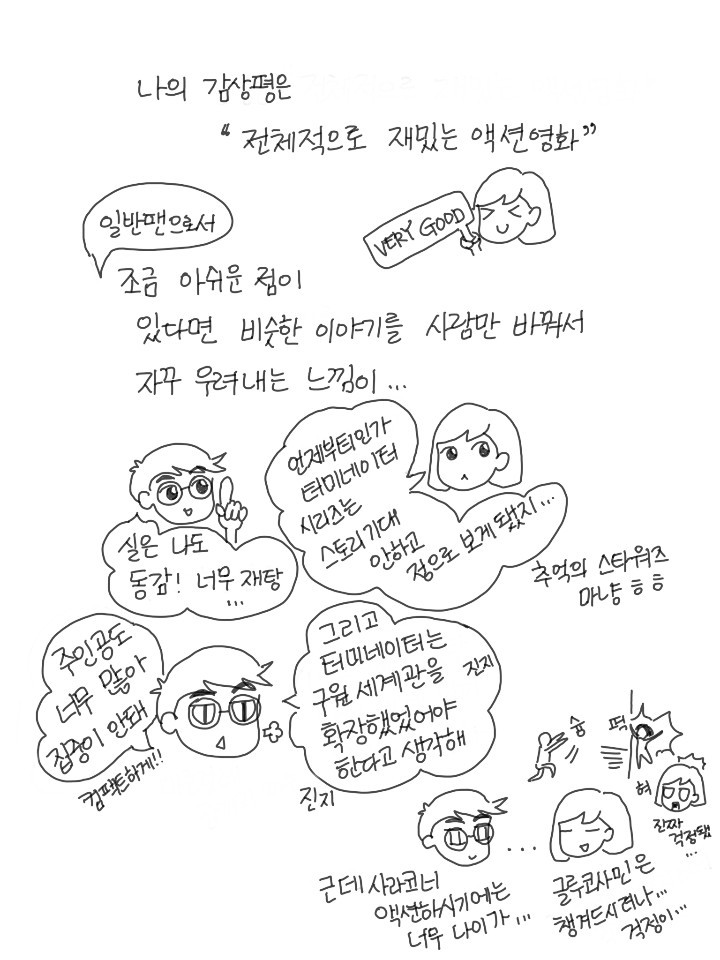 나의 감상평은
“전체적으로 재밌는 액션영화”
VERY GOOD
일반팬으로서
조금 아쉬운 점이
있다면 비슷한 이야기를 사람만 바꿔서
자꾸 우려내는 느낌이...
언제부터인가
터미네이터
시리즈는
스토리기대
안하고
정으로 보게 됐지...
실은 나도
동감! 너무 재탕
...
추억의 스타워즈
마냥 ㅎㅎ
주인공도
너무 많아
집중이 안돼
컴팩트하게!!
그리고
터미네이터는
구원 세계관을
확장했었어야
한다고 생각해
진지
진지
슝
퍽
헉
진짜
걱정됐
...
...
근데 사라코너
액션하시기에는
너무 나이가...
글루코사민은
챙겨드시려나...
걱정이...